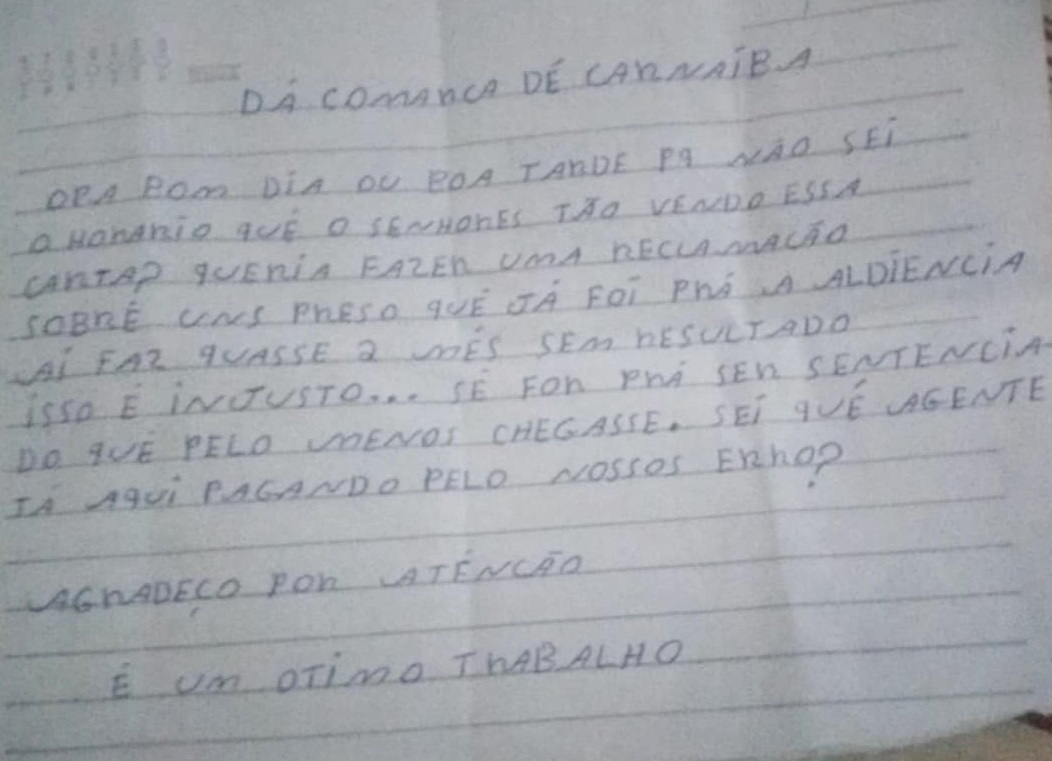 DÁ COMARCA DÉ CARNAÍBA
OPA BOM DIA OU BOA TARDE PQ NÃO SEI
O HORARIO QUÊ O SENHORES TÃO VENDO ESSA
CARTA? QUERIA FAZER UMA RECLAMAÇÃO
SOBRÉ UNS PRESO QUÉ JÁ FOI PRÁ A ALDIENCIA
AÍ FAZ QUASSE 2 MÊS SEM RESULTADO
ISSO É INJUSTO... SÉ FOR PRÁ SER SENTENCIA
DO QUÉ PELO MENOS CHEGASSE. SEI QUÉ AGENTE
TÁ AQUI PAGANDO PELO NOSSOS ERRO?
AGRADEÇO POR ATÉNCÃO
É UM OTIMO TRABALHO